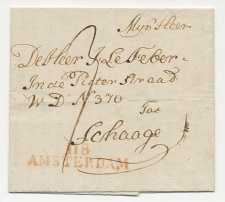 Mijn Heer
De Heer J. Le Feber.
In de Pieter straad
W D N° 370
Tot
Schaage
118
AMSTERDAM